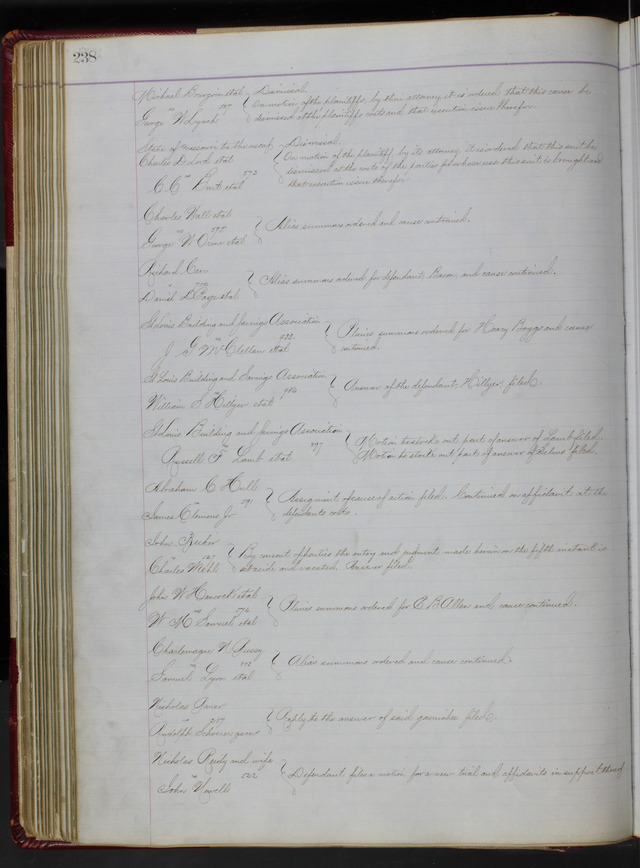 238
Michael et al Dismissal.
vs 197 On motion of the plaintiffs, by their attorney, it is ordered that this cause be
George W Lynch dismissed at the plaintiffs costs and that execution issue therefor.
State of Missouri to the use of Dismissal.
Charles D Lord et al On motion of the plaintiff, by its attorney, it is ordered that this suit be
vs 573 dismissed at the costs of the parties for whose use this suit is brought and
C. C. et al that execution issue therefor.
Charles Hall et al
vs Alias summons ordered and cause continued.
George W et al
Richard
vs Alias summons ordered for defendant, and cause continued.
Daniel D Page et al
St Louis Building and Savings Association
vs Pluries summons ordered for Henry Boggs and cause
J. G. McClellan et al continued.
St Louis Building and Savings Association
vs Answer of the defendant, Hillyer, filed.
William S Hillyer et al
St Louis Building and Savings Association
vs Motion to strike out part of answer of Lamb filed.
Russell F Lamb et al Motion to strike out part of answer of filed.
Abraham C Hull
vs 791 Assignment of cause of action filed. Continued on affidavit at the
James Clemens Jr defendants costs.
John
vs 187 By consent of parties the entry and judgment made herein on the fifth instant is
Charles Webb set aside and vacated. Answer filed.
John W Hancock et al
vs Pluries summons ordered for B Allen and cause continued.
W M Samuel et al
Charlemagne N
vs 172 Alias summons ordered and cause continued.
Samuel Lyon et al
Nicholas
vs Reply to the answer of said garnishee filed.
Rudolph
Nicholas Reidy and wife
vs 522 Defendant files a motion for a new trial and affidavits in support thereof
John Nowells